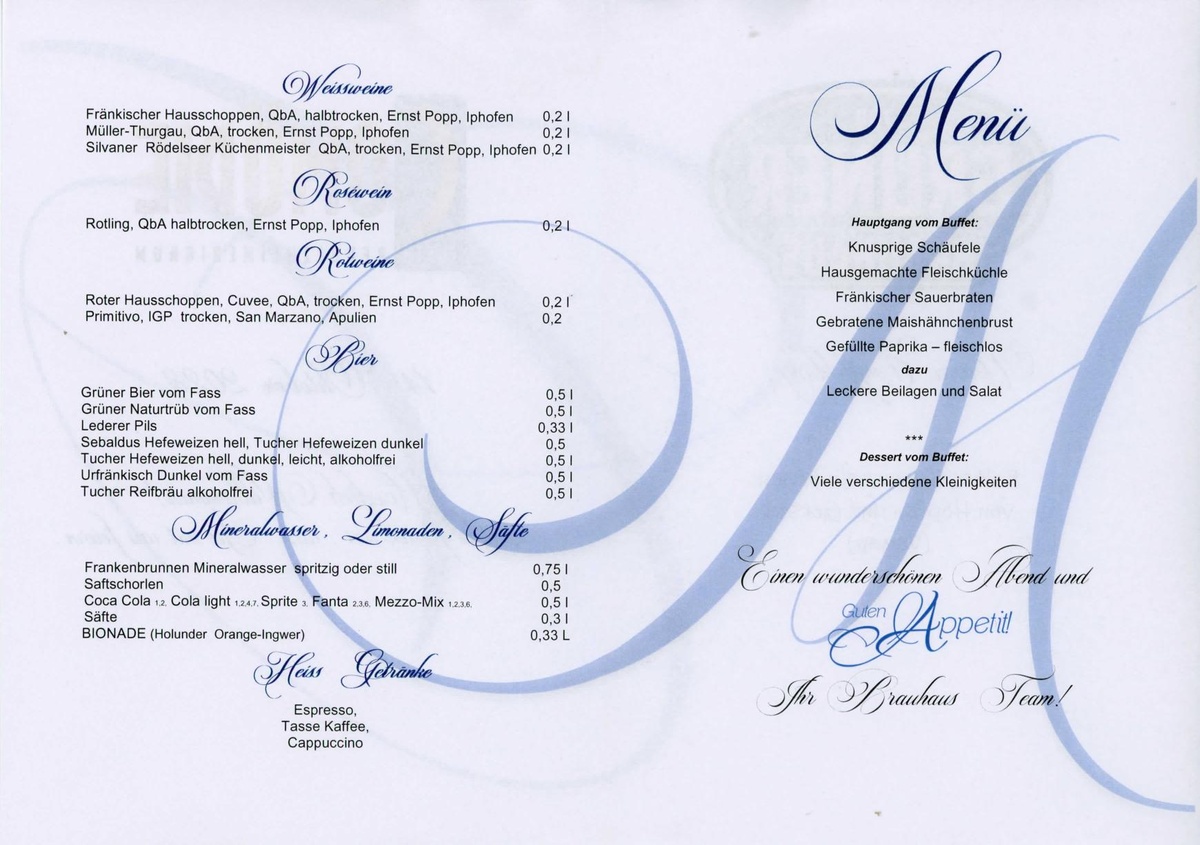 Weissweine
Fränkischer Hausschoppen, QbA, halbtrocken, Ernst Popp, Iphofen 0,2 l
Müller-Thurgau, QbA, trocken, Ernst Popp, Iphofen 0,2 l
Silvaner Rödelseer Küchenmeister QbA, trocken, Ernst Popp, Iphofen 0,2 l
Roséwein
Rotling, QbA halbtrocken, Ernst Popp, Iphofen 0,2 l
Rotweine
Roter Hausschoppen, Cuvee, QbA, trocken, Ernst Popp, Iphofen 0,2 l
Primitivo, IGP trocken, San Marzano, Apulien 0,2
Bier
Grüner Bier vom Fass 0,5 l
Grüner Naturtrüb vom Fass 0,5 l
Lederer Pils 0,33 l
Sebaldus Hefeweizen hell, Tucher Hefeweizen dunkel 0,5
Tucher Hefeweizen hell, dunkel, leicht, alkoholfrei 0,5 l
Urfränkisch Dunkel vom Fass 0,5 l
Tucher Reifbräu alkoholfrei 0,5 l
Mineralwasser, Limonaden, Säfte
Frankenbrunnen Mineralwasser spritzig oder still 0,75 l
Saftschorlen 0,5
Coca Cola 1,2, Cola light 1,2,4,7, Sprite 3, Fanta 2,3,6, Mezzo-Mix 1,2,3,6, 0,5 l
Säfte 0,3 l
BIONADE (Holunder Orange-Ingwer) 0,33 L
Heiss Getränke
Espresso,
Tasse Kaffee,
Cappuccino
Menü
Hauptgang vom Buffet:
Knusprige Schäufele
Hausgemachte Fleischküchle
Fränkischer Sauerbraten
Gebratene Maishähnchenbrust
Gefüllte Paprika – fleischlos
dazu
Leckere Beilagen und Salat
***
Dessert vom Buffet:
Viele verschiedene Kleinigkeiten
Einen wunderschönen Abend und
Guten Appetit!
Ihr Brauhaus Team!